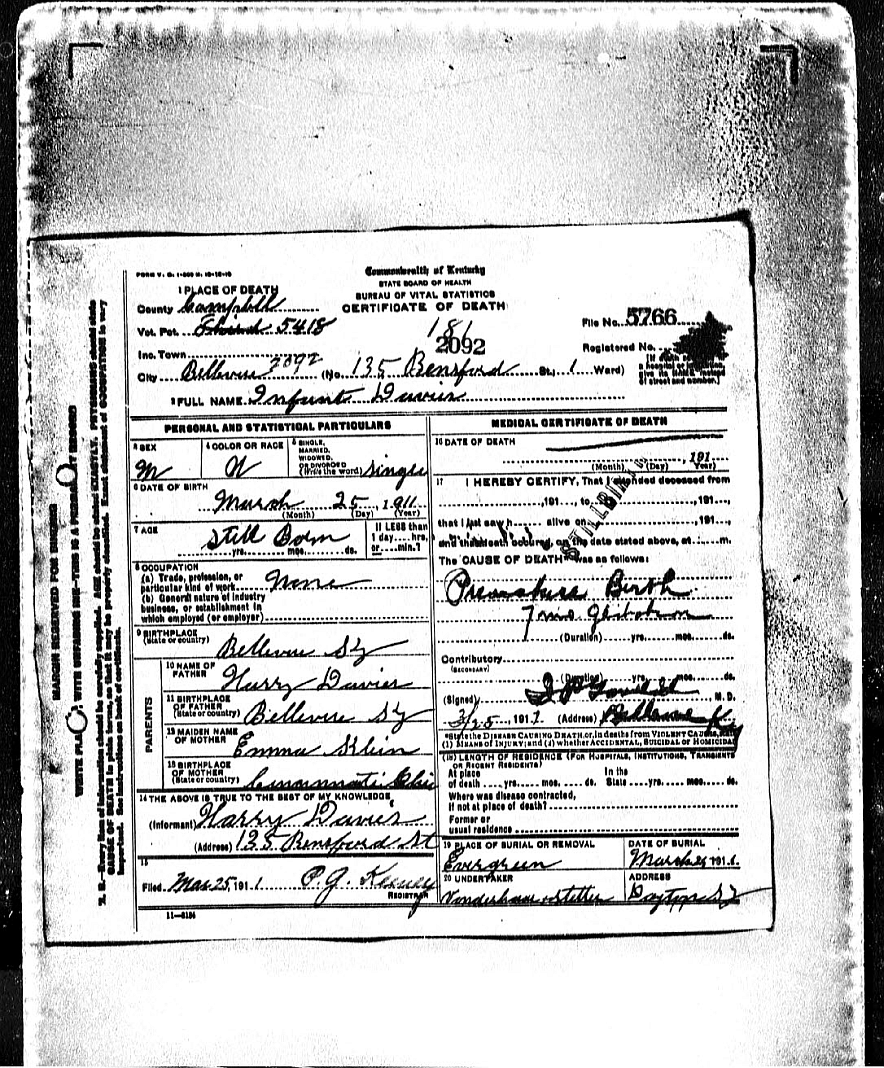 FORM V. S. 1
Commonwealth of Kentucky
STATE BOARD OF HEALTH
BUREAU OF VITAL STATISTICS
CERTIFICATE OF DEATH
1 PLACE OF DEATH
County Campbell
Vot. Pct. Third 5418
181
2092
File No. 5766
Registered No.
Inc. Town
City Bellevue 2092 (No. 135 Bensford St., 1 Ward)
2 FULL NAME Infant Davies
PERSONAL AND STATISTICAL PARTICULARS
3 SEX M
4 COLOR OR RACE W
5 SINGLE, MARRIED, WIDOWED, OR DIVORCED (Write the word) Single
6 DATE OF BIRTH March 25, 1911
(Month) (Day) (Year)
7 AGE Still Born
yrs. mos. ds.
If LESS than 1 day hrs. or min.?
8 OCCUPATION
(a) Trade, profession, or particular kind of work None
(b) General nature of industry business, or establishment in which employed (or employer)
9 BIRTHPLACE (State or country) Bellevue Ky
PARENTS
10 NAME OF FATHER Harry Davies
11 BIRTHPLACE OF FATHER (State or country) Bellevue Ky
12 MAIDEN NAME OF MOTHER Emma Klein
13 BIRTHPLACE OF MOTHER (State or country) Cincinnati Ohio
14 THE ABOVE IS TRUE TO THE BEST OF MY KNOWLEDGE
(Informant) Harry Davies
(Address) 135 Bensford St
15
Filed Mar 25, 1911 P. J. Keeney
REGISTRAR
11—3184
MEDICAL CERTIFICATE OF DEATH
16 DATE OF DEATH
191
(Month) (Day) (Year)
17 I HEREBY CERTIFY, That I attended deceased from
, 191 , to , 191 ,
that I last saw h alive on , 191 ,
and that death occured, on the date stated above, at m.
STILLBIRTH
The CAUSE OF DEATH was as follows:
Premature Birth
7 mo. Gestation
(Duration) yrs. mos. ds.
Contributory
(SECONDARY)
(Duration) yrs. mos. ds.
(Signed) M. D.
3/25, 1911 (Address) Bellevue Ky
*State the DISEASE CAUSING DEATH, or, in deaths from VIOLENT CAUSES, state
(1) MEANS OF INJURY; and (2) whether ACCIDENTAL, SUICIDAL OR HOMICIDAL
18 LENGTH OF RESIDENCE (FOR HOSPITALS, INSTITUTIONS, TRANSIENTS OR RECENT RESIDENTS)
At place of death yrs. mos. ds. In the State yrs. mos. ds.
Where was disease contracted, If not at place of death?
Former or usual residence
19 PLACE OF BURIAL OR REMOVAL Evergreen
DATE OF BURIAL March 26, 1911
20 UNDERTAKER
ADDRESS Dayton Ky
MARGIN RESERVED FOR BINDING
WRITE PLAINLY WITH UNFADING INK—THIS IS A PERMANENT RECORD
N. B.—Every item of information should be carefully supplied. AGE should be stated EXACTLY. PHYSICIANS should state
CAUSE OF DEATH in plain terms, so that it may be properly classified. Exact statement of OCCUPATION is very
important. See instructions on back of certificate.